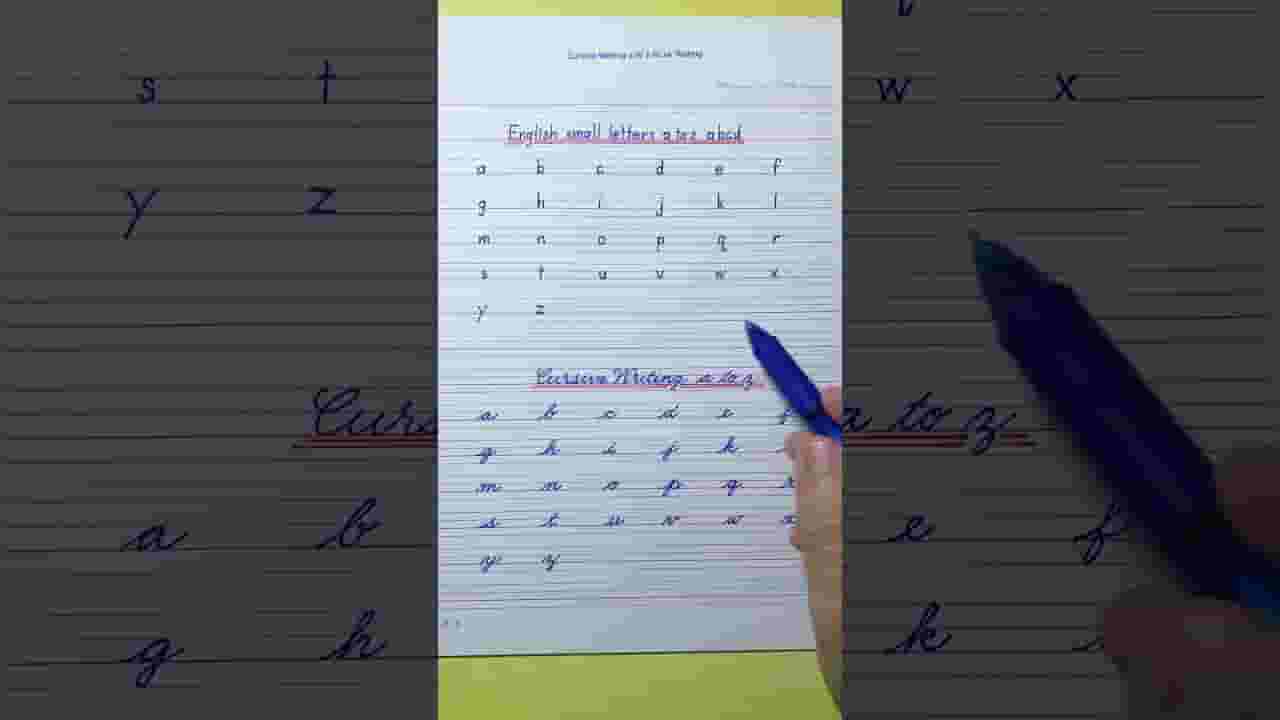 English small letters a to z abcd
a b c d e f
g h i j k l
m n o p q r
s t u v w x
y z
Cursive Writing a to z
a b c d e f
g h i j k
m n o p q r
s t u v w x
y z